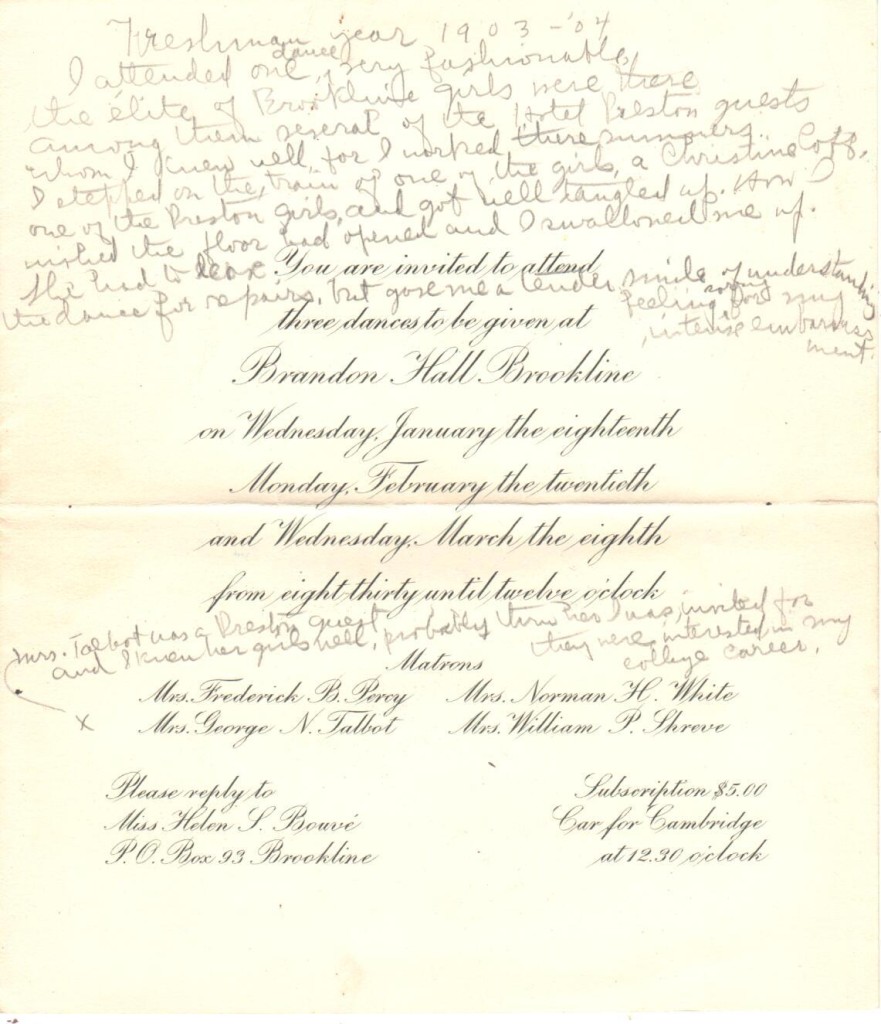 Freshman year 1903-'04
I attended one dance, very fashionable,
the élite of Brookline girls were there
among them several of the Hotel Preston guests
whom I knew well, for I worked there summers.
I stepped on the train of one of the girls, a Christine
one of the Preston girls, and got well tangled up. How I
wished the floor had opened and swallowed me up.
She had to leave
the dance for repairs, but gave me a tender smile of understanding
feeling sorry for my
intense embarrass
ment.
You are invited to attend
three dances to be given at
Brandon Hall Brookline
on Wednesday, January the eighteenth
Monday, February the twentieth
and Wednesday, March the eighth
from eight-thirty until twelve o'clock
Mrs. Talbot was a Preston guest
and I knew her girls well, probably thru her I was invited for
they were interested in my
college career.
Matrons
Mrs. Frederick B. Percy Mrs. Norman H. White
x Mrs. George N. Talbot Mrs. William P. Shreve
Please reply to
Miss Helen S. Bouvé
P.O. Box 93 Brookline
Subscription $5.00
Car for Cambridge
at 12.30 o'clock